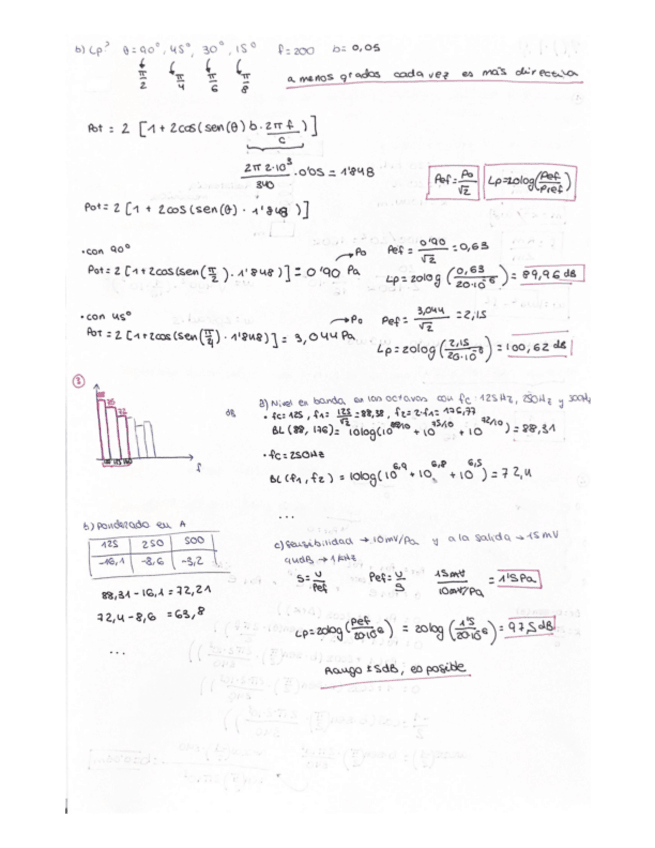 b) Lp? θ=90°, 45°, 30°, 15° f=200 b=0,05
π/2 π/4 π/6 π/8
a menos grados cada vez es más directiva
Pot = 2 [1+2cos(sen(θ) b · 2πf/c)]
2π 2·10³/340 · 0'05 = 1'848
Pef = Po/√2 Lp=20log(Pef/Pref)
Pot = 2 [1 + 2cos(sen(θ) · 1'848)]
• con 90°
Pot = 2 [1+2cos(sen(π/2) · 1'848)] = 0'90 Pa → Po
Pef = 0'90/√2 = 0,63
Lp = 20log(0,63/20·10⁻⁶) = 89,96 dB
• con 45°
Pot = 2 [1+2cos(sen(π/4) · 1'848)] = 3,044 Pa → Po
Pef = 3,044/√2 = 2,15
Lp = 20log(2,15/20·10⁻⁶) = 100,62 dB
3
88 75 72
dB
f
125 250 500
a) Nivel en banda en las octavas con fc: 125Hz, 250Hz y 500Hz
• fc=125, f1= 125/√2 = 88,38, f2=2·f1= 176,77
BL (88, 176) = 10log(10^88/10 + 10^75/10 + 10^72/10) = 88,31
• fc=250Hz
BL (f1, f2) = 10log(10^6,9 + 10^6,8 + 10^6,5) = 72,4
...
b) Ponderado en A
125 250 500
-16,1 -8,6 -3,2
88,31-16,1 = 72,21
72,4-8,6 = 63,8
...
c) Sensibilidad → 10mV/Pa y a la salida → 15mV
94dB → 1kHz
S= V/Pef Pef= V/S 15mV/10mV/Pa = 1'5Pa
Lp=20log(Pef/20·10⁻⁶) = 20log(1'5/20·10⁻⁶) = 97,5dB
Rango ±5dB, es posible